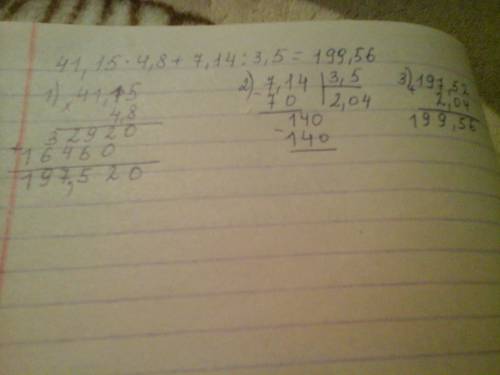 41,15 · 4,8 + 7,14 : 3,5 = 199,56
1) × 41,15
4,8
32920
+ 16460
197,520
2) - 7,14 | 3,5
70 | 2,04
140
- 140
3) + 197,52
2,04
199,56